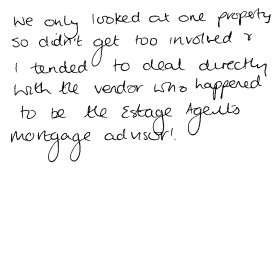 We only looked at one property
so didn't get too involved &
I tended to deal directly
with the vendor who happened
to be the Estage Agents
mortgage advisor!